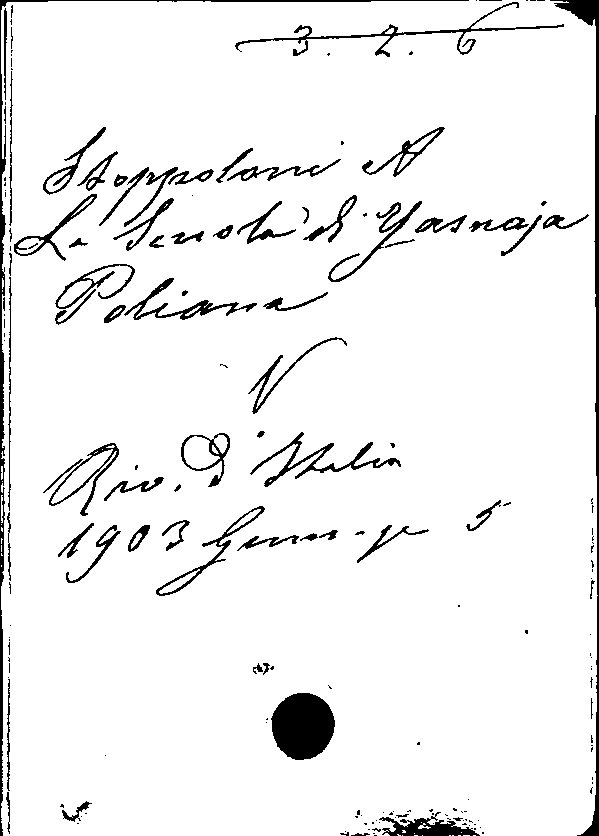 3. 2. 6
Stoppoloni A
La Scuola di Yasnaja
Poliana
V
Riv. d'Italia
1903 Genn. - p. 5